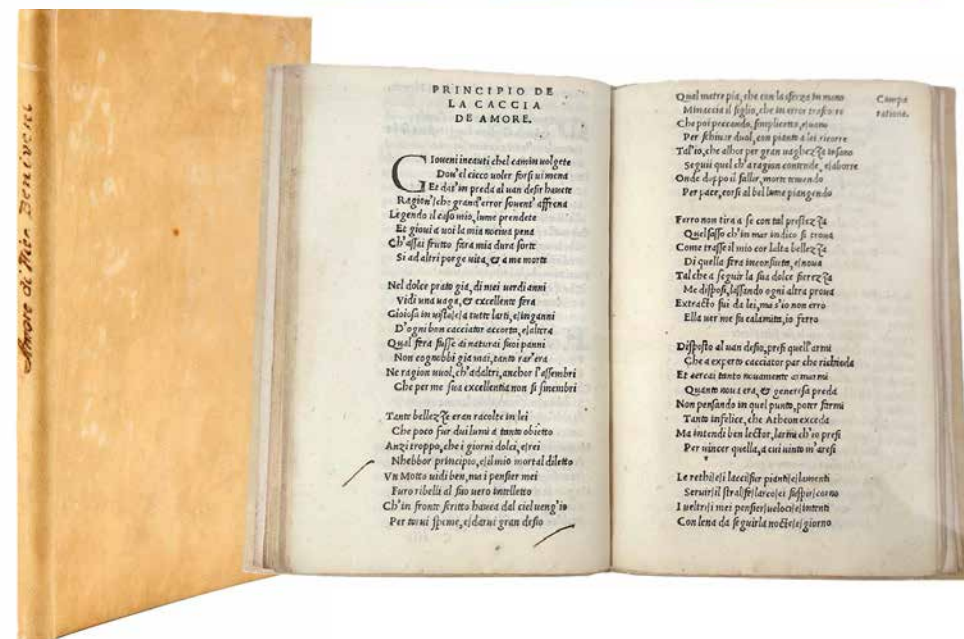 Amore di Hier Benivieni
PRINCIPIO DE
LA CACCIA
DE AMORE.
Gioueni incauti chel camin uolgete
Dou'el cieco uoler forsi ui mena
Et dat'in preda al uan desir hauete
Ragion'/che grand'error souent' affrena
Legendo il caso mio, lume prendete
Et gioui a uoi la mia nociua pena
Ch'assai frutto fara mia dura sorte
Si ad altri porge uita, & a me morte
Nel dolce prato gia, di mei uerdi anni
Vidi una uaga, & excellente fera
Gioiosa in uista/e/a tutte larti, e/inganni
D'ogni bon cacciator accorta, e/altera
Qual fera fusse di naturai suoi panni
Non cognobbi gia mai, tanto rar'era
Ne ragion uuol, ch'ad altri, anchor l'assembri
Che per me sua excellentia non si sinembri
Tante bellezze eran racolte in lei
Che poco fur dui lumi a tanto obietto
Anzi troppo, che i giorni dolci, e/rei
Nhebbor principio, e/il mio mortal diletto
Vn Motto uidi ben, ma i pensier mei
Furo ribelli al suo uero intelletto
Ch'in fronte scritto hauea dal ciel ueng'io
Per torui speme, e/darui gran desio
Qual matre pia, che con la sferza in mano
Minaccia il figlio, che in error trascorre
Che poi peccando, simplicetto, e/uano
Per schiuar duol, con pianto a lei ricorre
Tal'io, che alhor per gran uaghezza insano
Seguii quel ch'a ragion contende, e/aborre
Onde doppo il fallir, morte temendo
Per pace, corsi al bel lume piangendo
Compa
ratione.
Ferro non tira a se con tal prestezza
Quel sasso ch'in mar indico si troua
Come trasse il mio cor lalta bellezza
Di quella fera inconsueta, e/noua
Tal che a seguir la sua dolce fierezza
Me disposi, lassando ogni altra proua
Extracto fui da lei, ma s'io non erro
Ella uer me fu calamita, io ferro
Disposto al uan desio, presi quell'armi
Che a experto cacciator par che richieda
Et cercai tanto nouamente armarmi
Quanto noua era, & generosa preda
Non pensando in quel punto, poter farmi
Tanto infelice, che Atheon exceda
Ma intendi ben lector, larmi ch'io presi
Per uincer quella, a cui uinto m'aresi
Le rethi/e/i lacci/fur pianti/e/lamenti
Seruir/il stral/e/larco/ei suspir/corno
I ueltri/i mei pensier/ueloci/e/intenti
Con lena da seguirla nocte/e/giorno